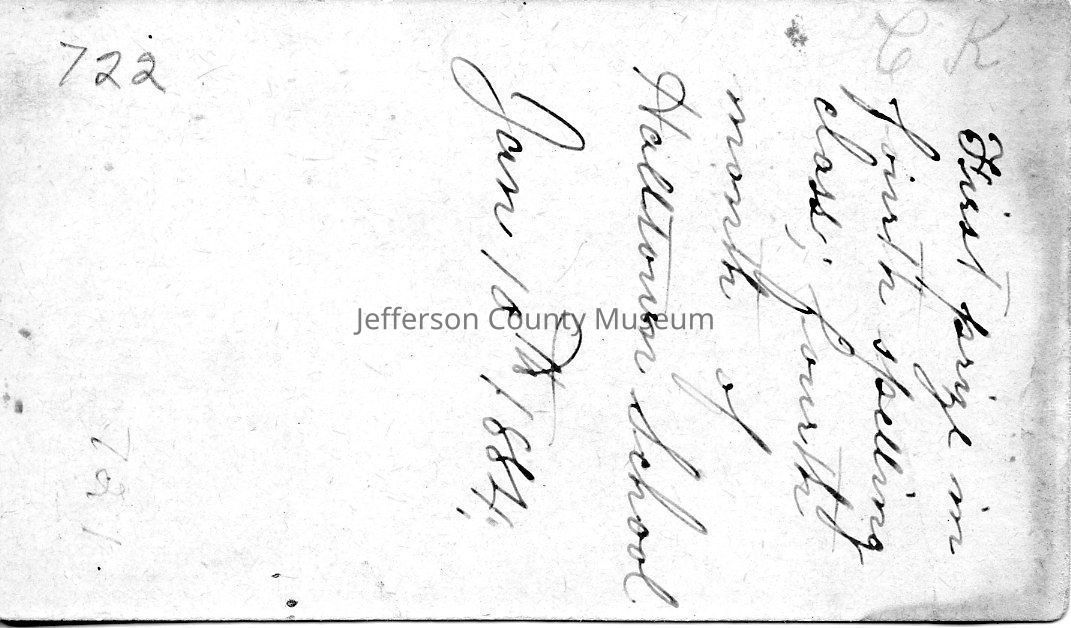 First prize in
fourth spelling
class; fourth
month of
Halltown School
Jan, 10th 1884,
C K
722
721
Jefferson County Museum